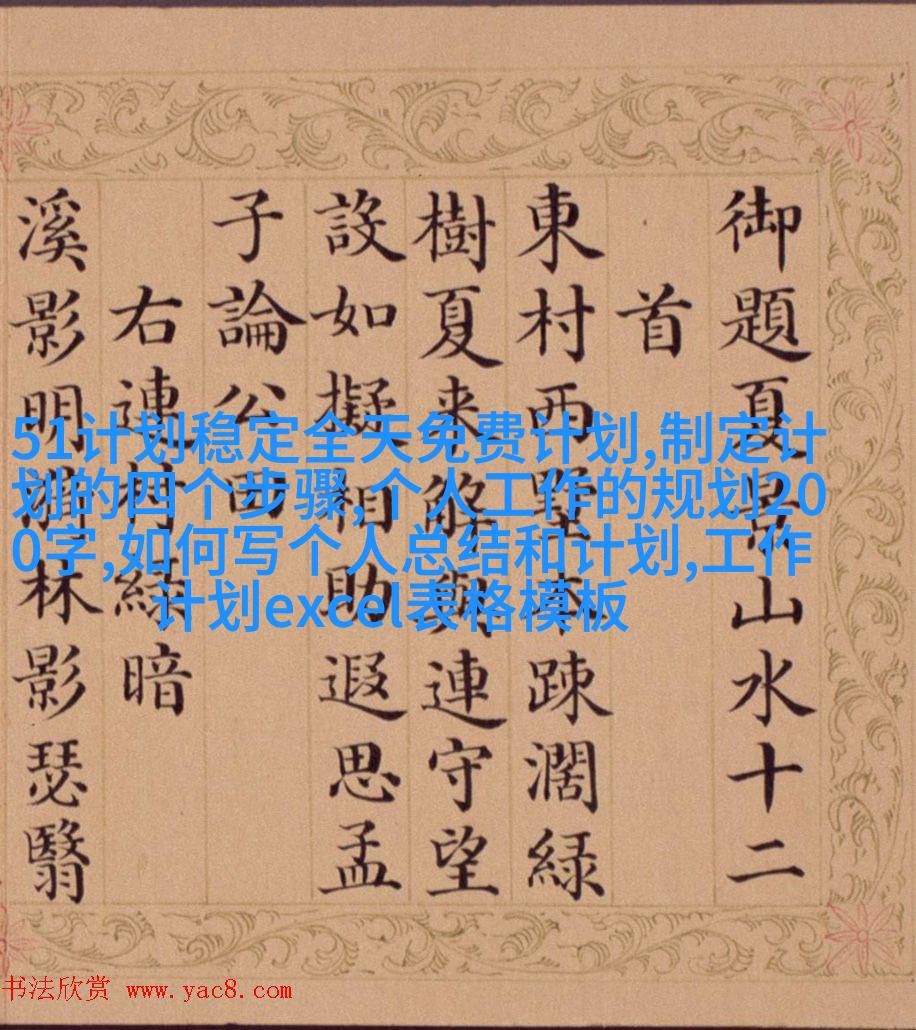 御題夏山水十二
首
東村西墅疎濶緑
樹夏来解連守望
設如擬相助遐思孟
子論公田
右連村緑暗
溪影明林影瑟翳
51计划稳定全天免费计划,制定计
划的四个步骤,个人工作的规划20
0字,如何写个人总结和计划,工作
计划excel表格模板
书法欣赏 www.yac8.com